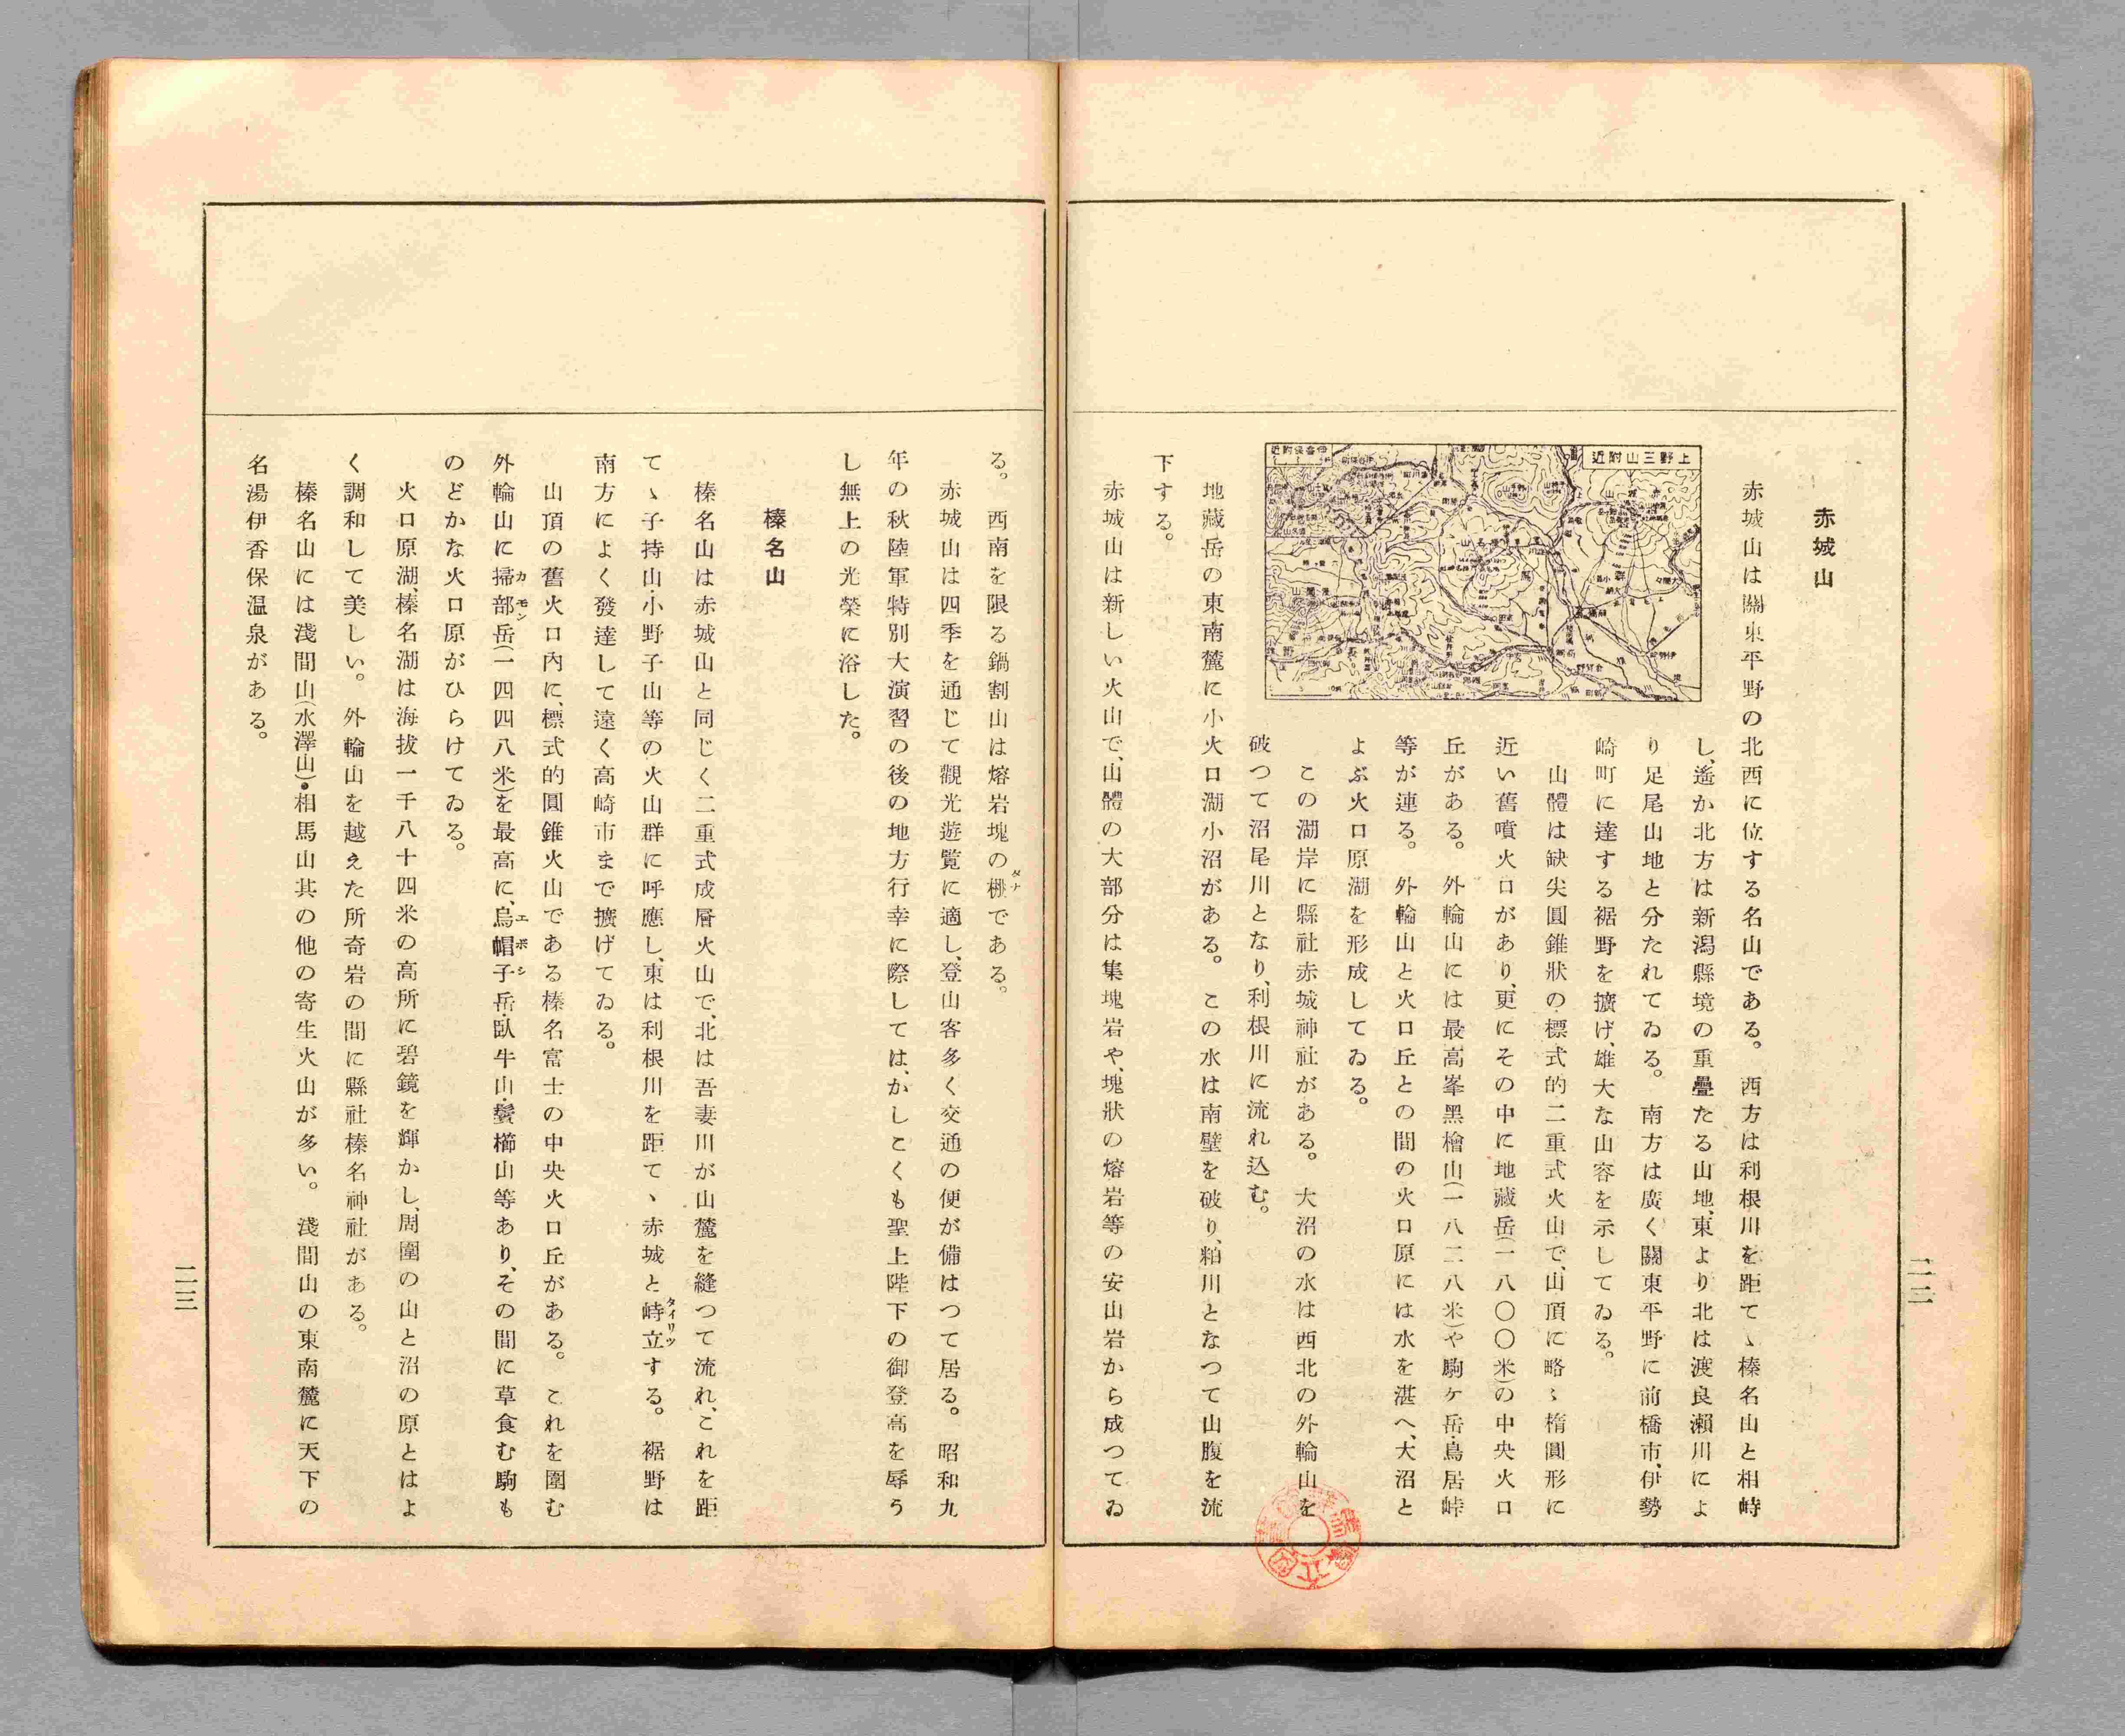 赤城山
赤城山は關東平野の北西に位する名山である。西方は利根川を距てゝ榛名山と相峙
し、遙か北方は新潟縣境の重疊たる山地、東より北は渡良瀨川によ
り足尾山地と分たれてゐる。南方は廣く關東平野に前橋市、伊勢
崎町に達する裾野を擴げ、雄大な山容を示してゐる。
山體は缺尖圓錐狀の標式的二重式火山で、山頂に略〻楕圓形に
近い舊噴火口があり、更にその中に地藏岳(一八〇〇米)の中央火口
丘がある。外輪山には最高峯黑檜山(一八二八米)や駒ケ岳・鳥居峠
等が連る。外輪山と火口丘との間の火口原には水を湛へ、大沼と
よぶ火口原湖を形成してゐる。
この湖岸に縣社赤城神社がある。大沼の水は西北の外輪山を
破つて沼尾川となり、利根川に流れ込む。
地藏岳の東南麓に小火口湖小沼がある。この水は南壁を破り、粕川となつて山腹を流
下する。
赤城山は新しい火山で、山體の大部分は集塊岩や、塊狀の熔岩等の安山岩から成つてゐ
上野三山附近
伊香保附近
二二
る。西南を限る鍋割山は熔岩塊の棚である。
タナ
赤城山は四季を通じて觀光遊覽に適し、登山客多く交通の便が備はつて居る。昭和九
年の秋陸軍特別大演習の後の地方行幸に際しては、かしこくも聖上陛下の御登高を辱う
し無上の光榮に浴した。
榛名山
榛名山は赤城山と同じく二重式成層火山で、北は吾妻川が山麓を縫つて流れ、これを距
てゝ子持山・小野子山等の火山群に呼應し、東は利根川を距てゝ赤城と峙立する。裾野は
タイリツ
南方によく發達して遠く高崎市まで擴げてゐる。
山頂の舊火口內に、標式的圓錐火山である榛名富士の中央火口丘がある。これを圍む
外輪山に掃部岳(一四四八米)を最高に、烏帽子岳・臥牛山・鬢櫛山等あり、その間に草食む駒も
カモン エボシ
のどかな火口原がひらけてゐる。
火口原湖、榛名湖は海拔一千八十四米の高所に碧鏡を輝かし、周圍の山と沼の原とはよ
く調和して美しい。外輪山を越えた所奇岩の間に縣社榛名神社がある。
榛名山には淺間山(水澤山)・相馬山其の他の寄生火山が多い。淺間山の東南麓に天下の
名湯伊香保温泉がある。
二三